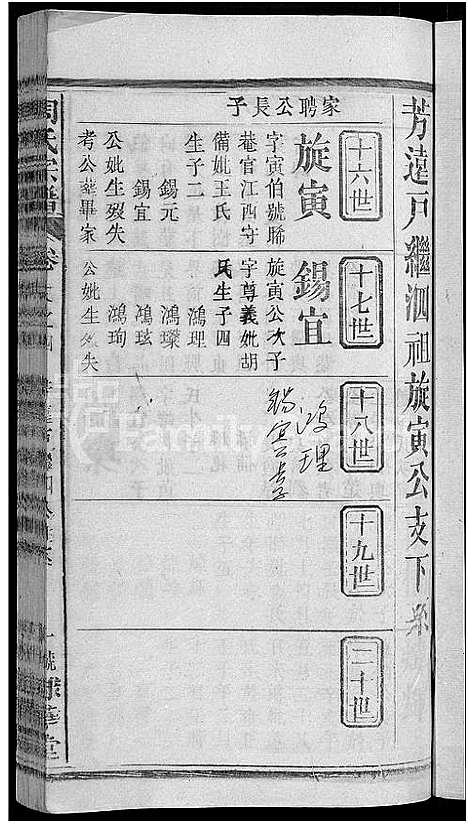 芳遠戶繼泗祖旋寅公支下
十六世
十七世
十八世
十九世
二十世
家聘公長子
旋寅
字寅伯號縣
巷官江西守
備妣王氏
生子二
錫元
錫宜
公妣生歿失
考公葬畢家
錫宜
旋寅公次子
字尊義妣胡
氏生子四
鴻理
鴻璨
鴻玹
鴻珣
公妣生歿失
鴻理
錫宜長子
周氏宗譜